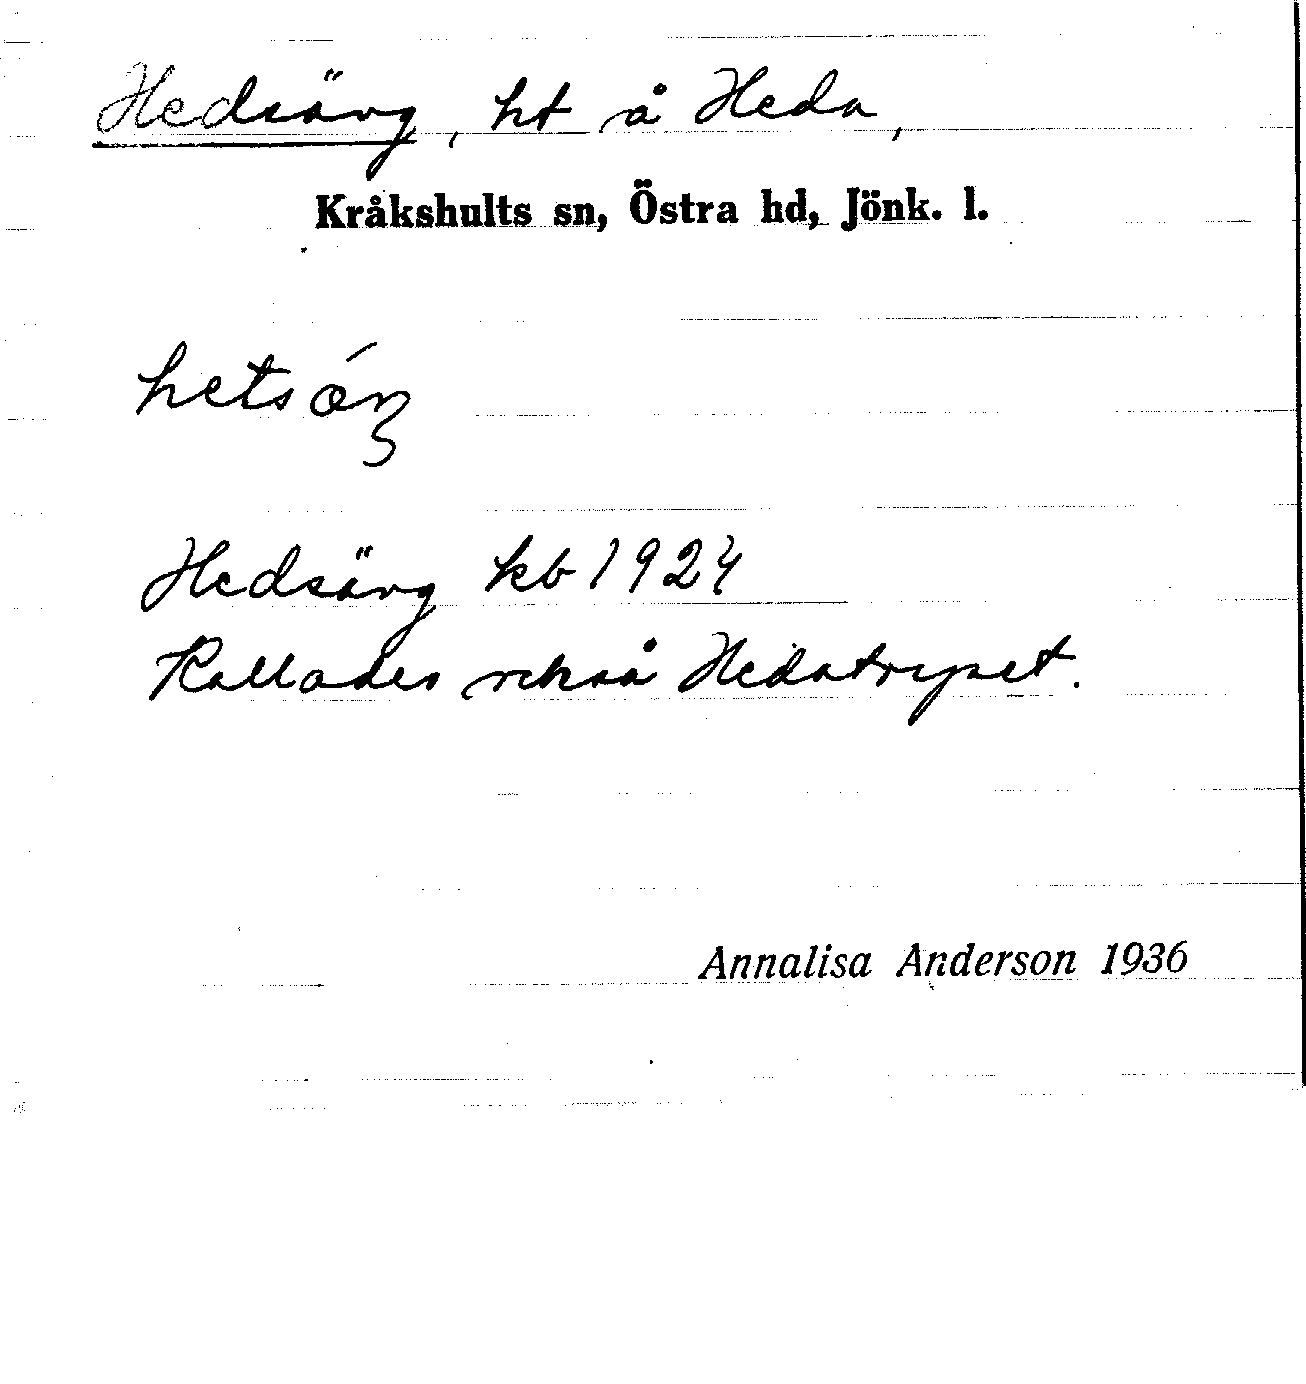 Hedsäng, ht å Heda,
Kråkshults sn, Östra hd, Jönk. l.
Hedsäng kb 1924
Kallades också Hedatorpet.
Annalisa Anderson 1936